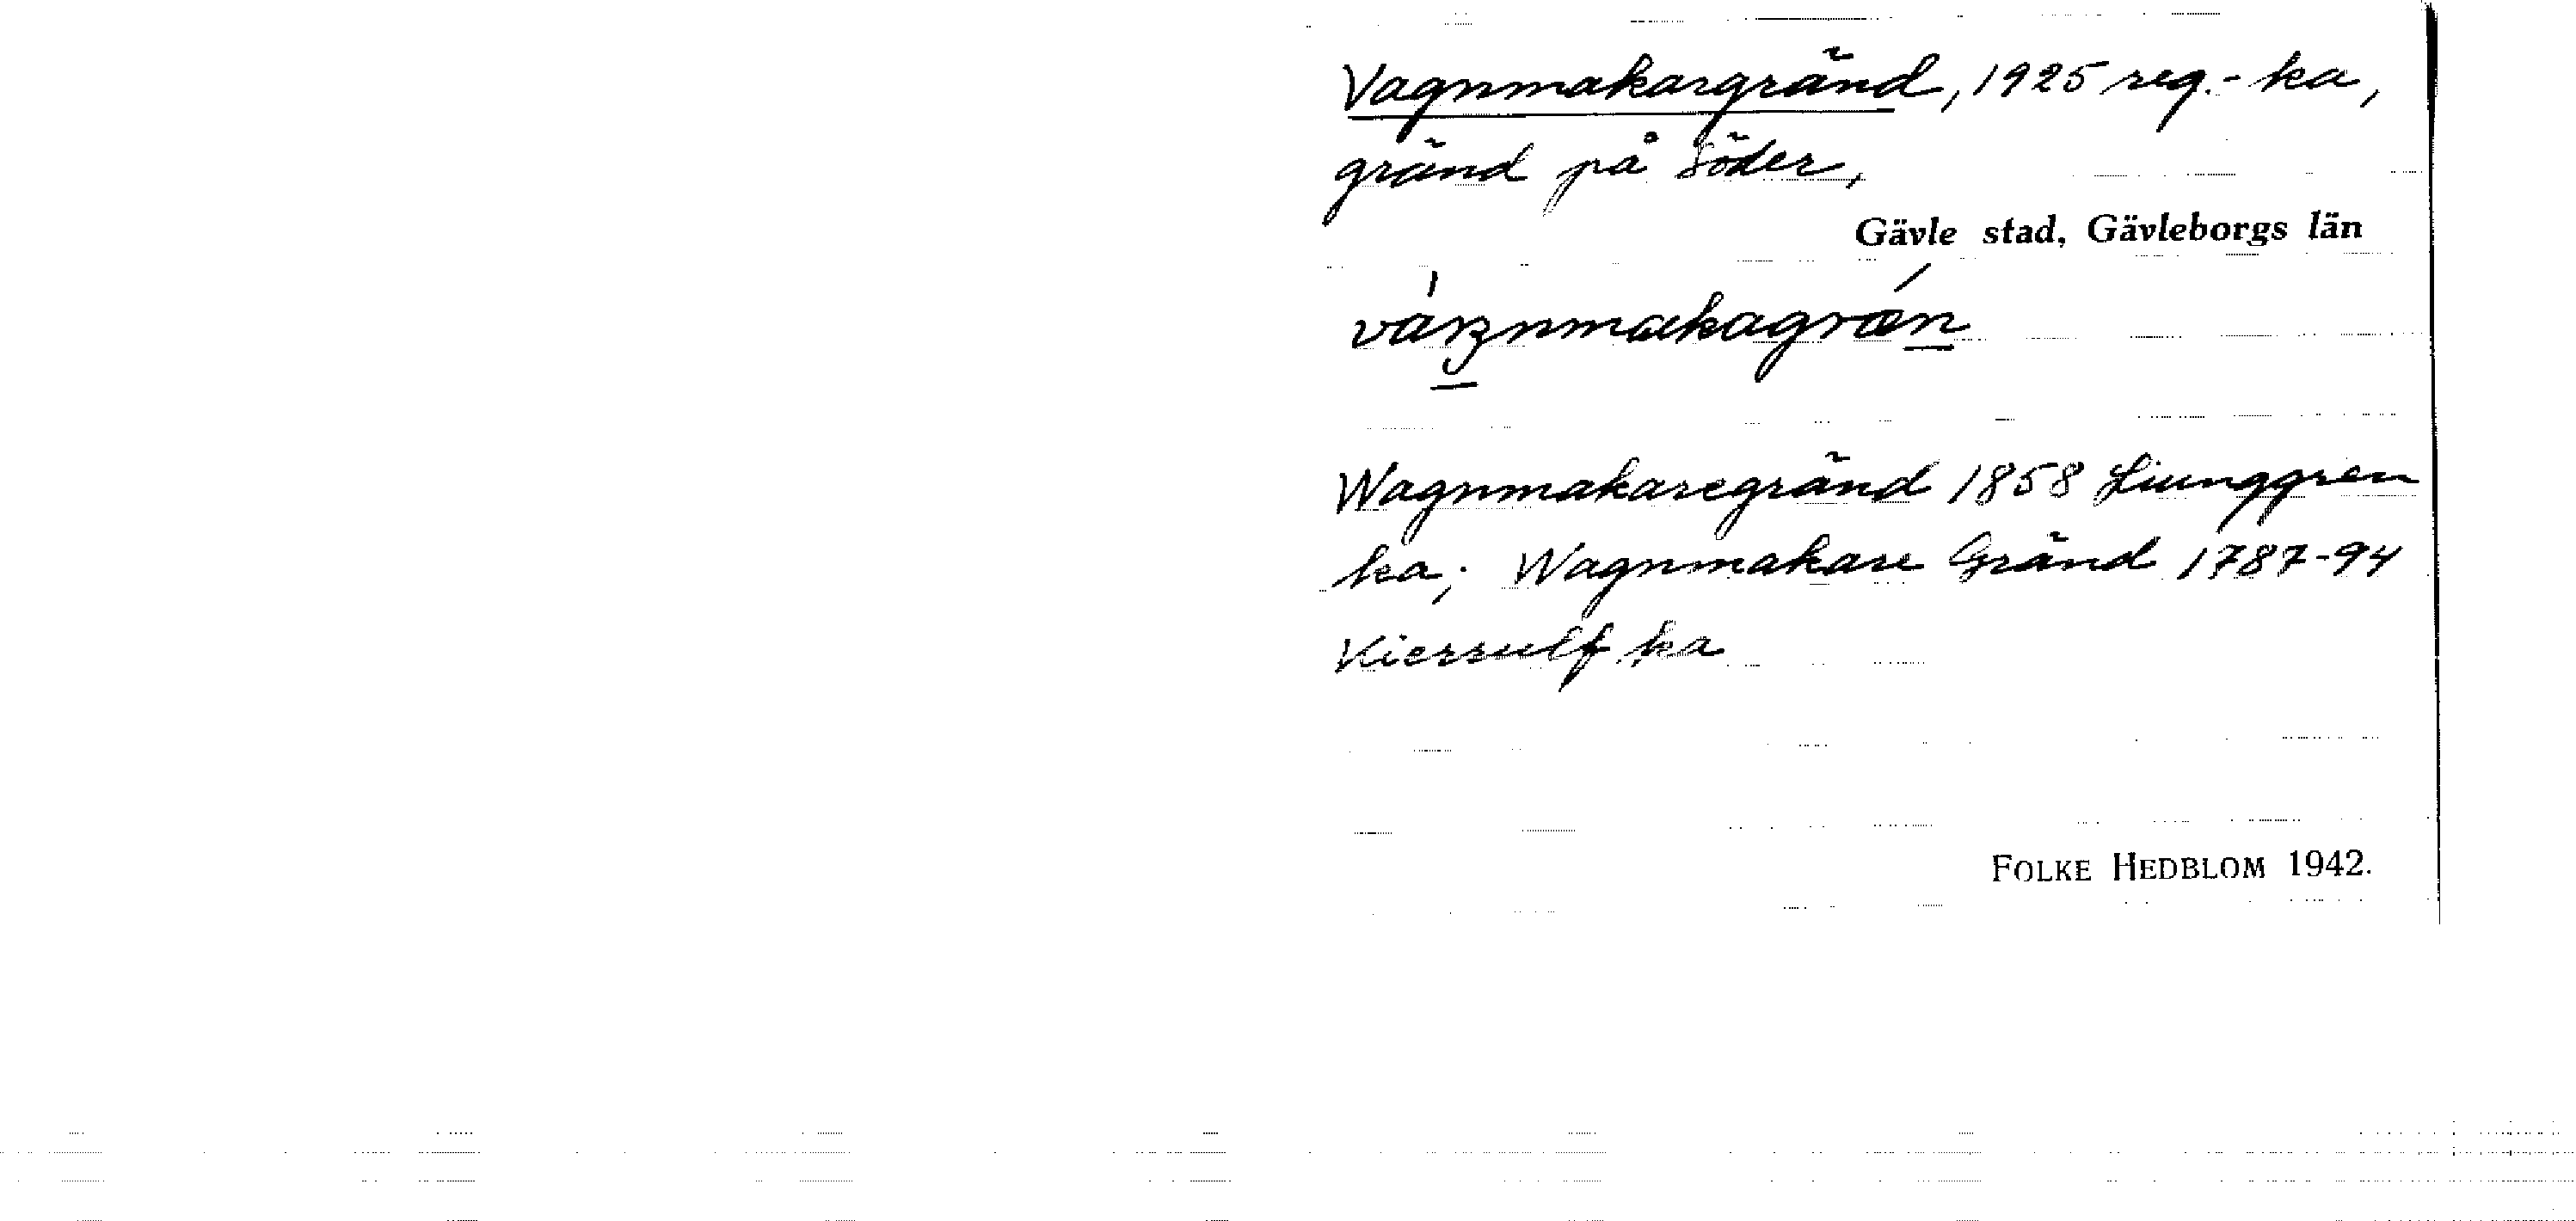 Vagnmakargränd, 1925 reg.-ka,
gränd på Söder,
Gävle stad, Gävleborgs län
Wagnmakaregränd 1858 Ljunggren
ka; Wagnmakare Gränd 1787-94
Kierrulf ka
FOLKE HEDBLOM 1942.